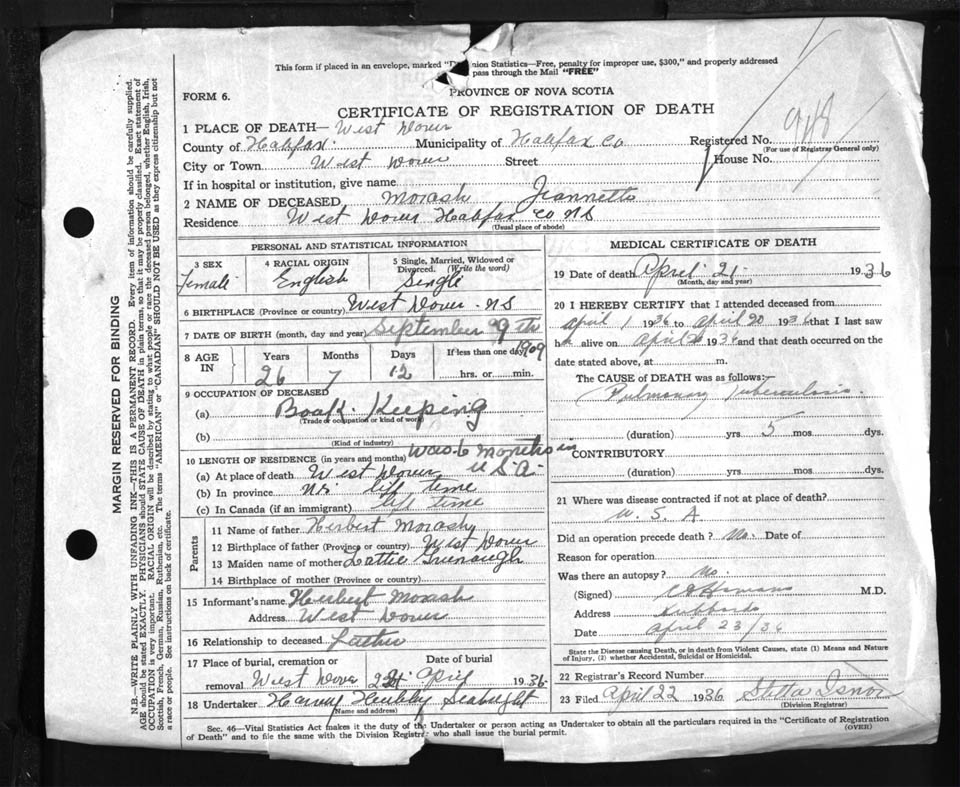 This form if placed in an envelope, marked "D ion Statistics—Free, penalty for improper use, $300," and properly addressed
pass through the Mail "FREE"
FORM 6.
PROVINCE OF NOVA SCOTIA
CERTIFICATE OF REGISTRATION OF DEATH
1 PLACE OF DEATH— West Dover
County of Halifax. Municipality of Halifax Co Registered No. 948
(For use of Registrar General only)
City or Town West Dover Street House No.
If in hospital or institution, give name
2 NAME OF DECEASED Morash Jeannette
Residence West Dover Halifax Co NS
(Usual place of abode)
PERSONAL AND STATISTICAL INFORMATION
3 SEX 4 RACIAL ORIGIN 5 Single, Married, Widowed or
Divorced. (Write the word)
Female English Single
6 BIRTHPLACE (Province or country) West Dover NS
7 DATE OF BIRTH (month, day and year) September 9th
1909
8 AGE IN Years Months Days If less than one day
26 7 12 hrs. or min.
9 OCCUPATION OF DECEASED
(a) Book Keeping
(Trade or occupation or kind of work)
(b)
(Kind of industry)
10 LENGTH OF RESIDENCE (in years and months) was 6 months in
U S A
(a) At place of death West Dover
(b) In province NS life time
(c) In Canada (if an immigrant) life time
Parents
11 Name of father Herbert Morash
12 Birthplace of father (Province or country) West Dover
13 Maiden name of mother Lattie
14 Birthplace of mother (Province or country)
15 Informant's name Herbert Morash
Address West Dover
16 Relationship to deceased Father
17 Place of burial, cremation or Date of burial
removal West Dover 22 April 1936
18 Undertaker Harvey Hubley Seabright
(Name and address)
MEDICAL CERTIFICATE OF DEATH
19 Date of death April 21 1936
(Month, day and year)
20 I HEREBY CERTIFY that I attended deceased from
April 1 1936 to April 20 1936 that I last saw
h alive on April 20 1936 and that death occurred on the
date stated above, at m.
The CAUSE of DEATH was as follows:—
Pulmonary Tuberculosis
(duration) yrs 5 mos. dys.
CONTRIBUTORY
(duration) yrs. mos. dys.
21 Where was disease contracted if not at place of death?
U. S. A
Did an operation precede death? No. Date of
Reason for operation
Was there an autopsy? No.
(Signed) M.D.
Address Hubbards
Date April 23/36
State the Disease causing Death, or in death from Violent Causes, state (1) Means and Nature
of Injury, (2) whether Accidental, Suicidal or Homicidal.
22 Registrar's Record Number
23 Filed April 22 1936 Stella Isnor
(Division Registrar)
Sec. 46—Vital Statistics Act makes it the duty of the Undertaker or person acting as Undertaker to obtain all the particulars required in the "Certificate of Registration
of Death" and to file the same with the Division Registrar who shall issue the burial permit.
(OVER)
MARGIN RESERVED FOR BINDING
N.B.—WRITE PLAINLY WITH UNFADING INK—THIS IS A PERMANENT RECORD. Every item of information should be carefully supplied.
AGE should be stated EXACTLY. PHYSICIANS should STATE CAUSE OF DEATH in plain terms, so that it may be properly classified. Exact statement of
OCCUPATION is very important. RACIAL ORIGIN will be described by stating to what people or race the deceased person belonged, whether English, Irish,
Scottish, French, German, Russian, Ruthenian, etc. The terms "AMERICAN" or "CANADIAN" SHOULD NOT BE USED as they express citizenship but not
a race or people. See instructions on back of certificate.